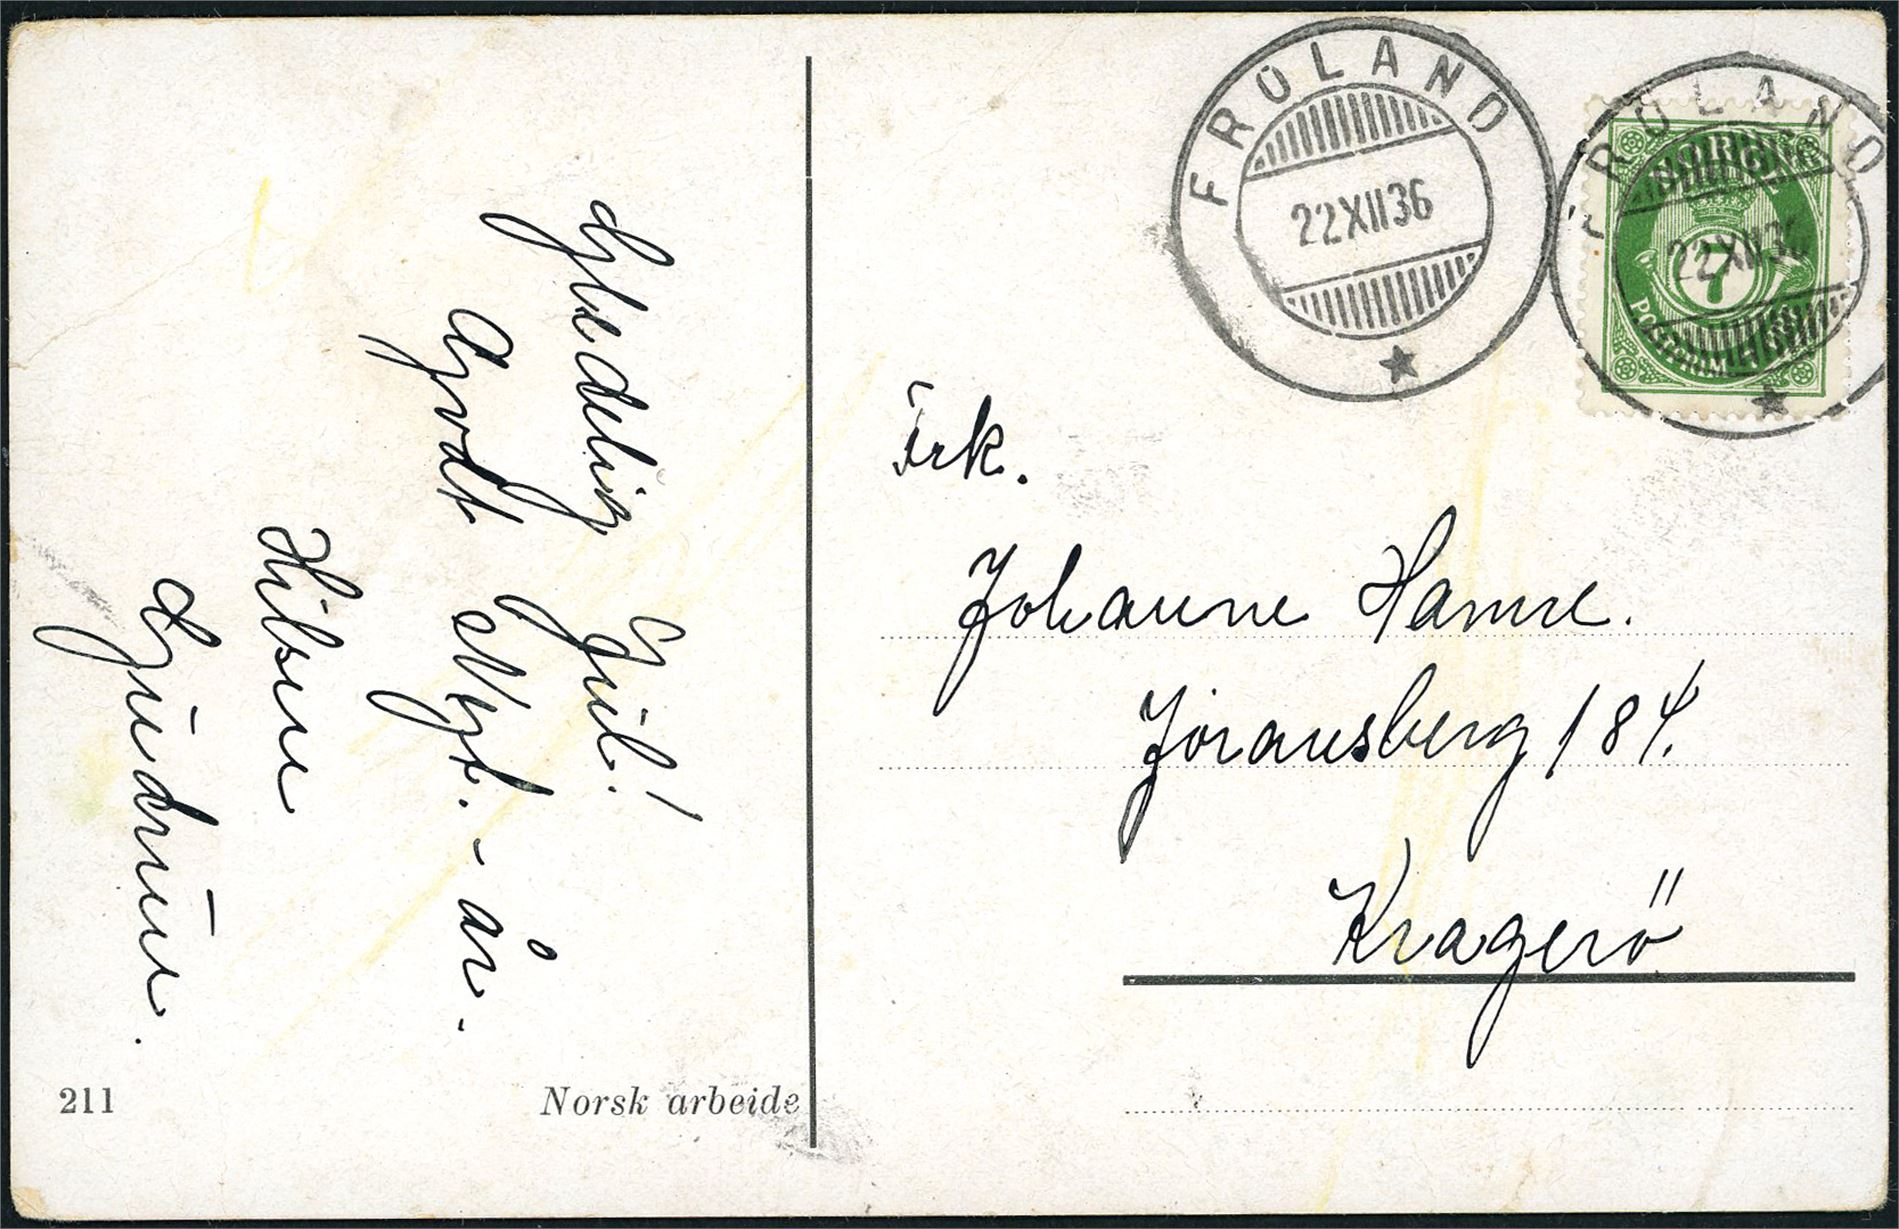 Gledelig Jul!
Godt Nyt.-år.
Hilsen
Gudrun.
211
Norsk arbeide
FROLAND
22XII36
FROLAND
22XII36
NORGE
7
Frk.
Johanne Hanne.
Joransberg 184.
Kragerö